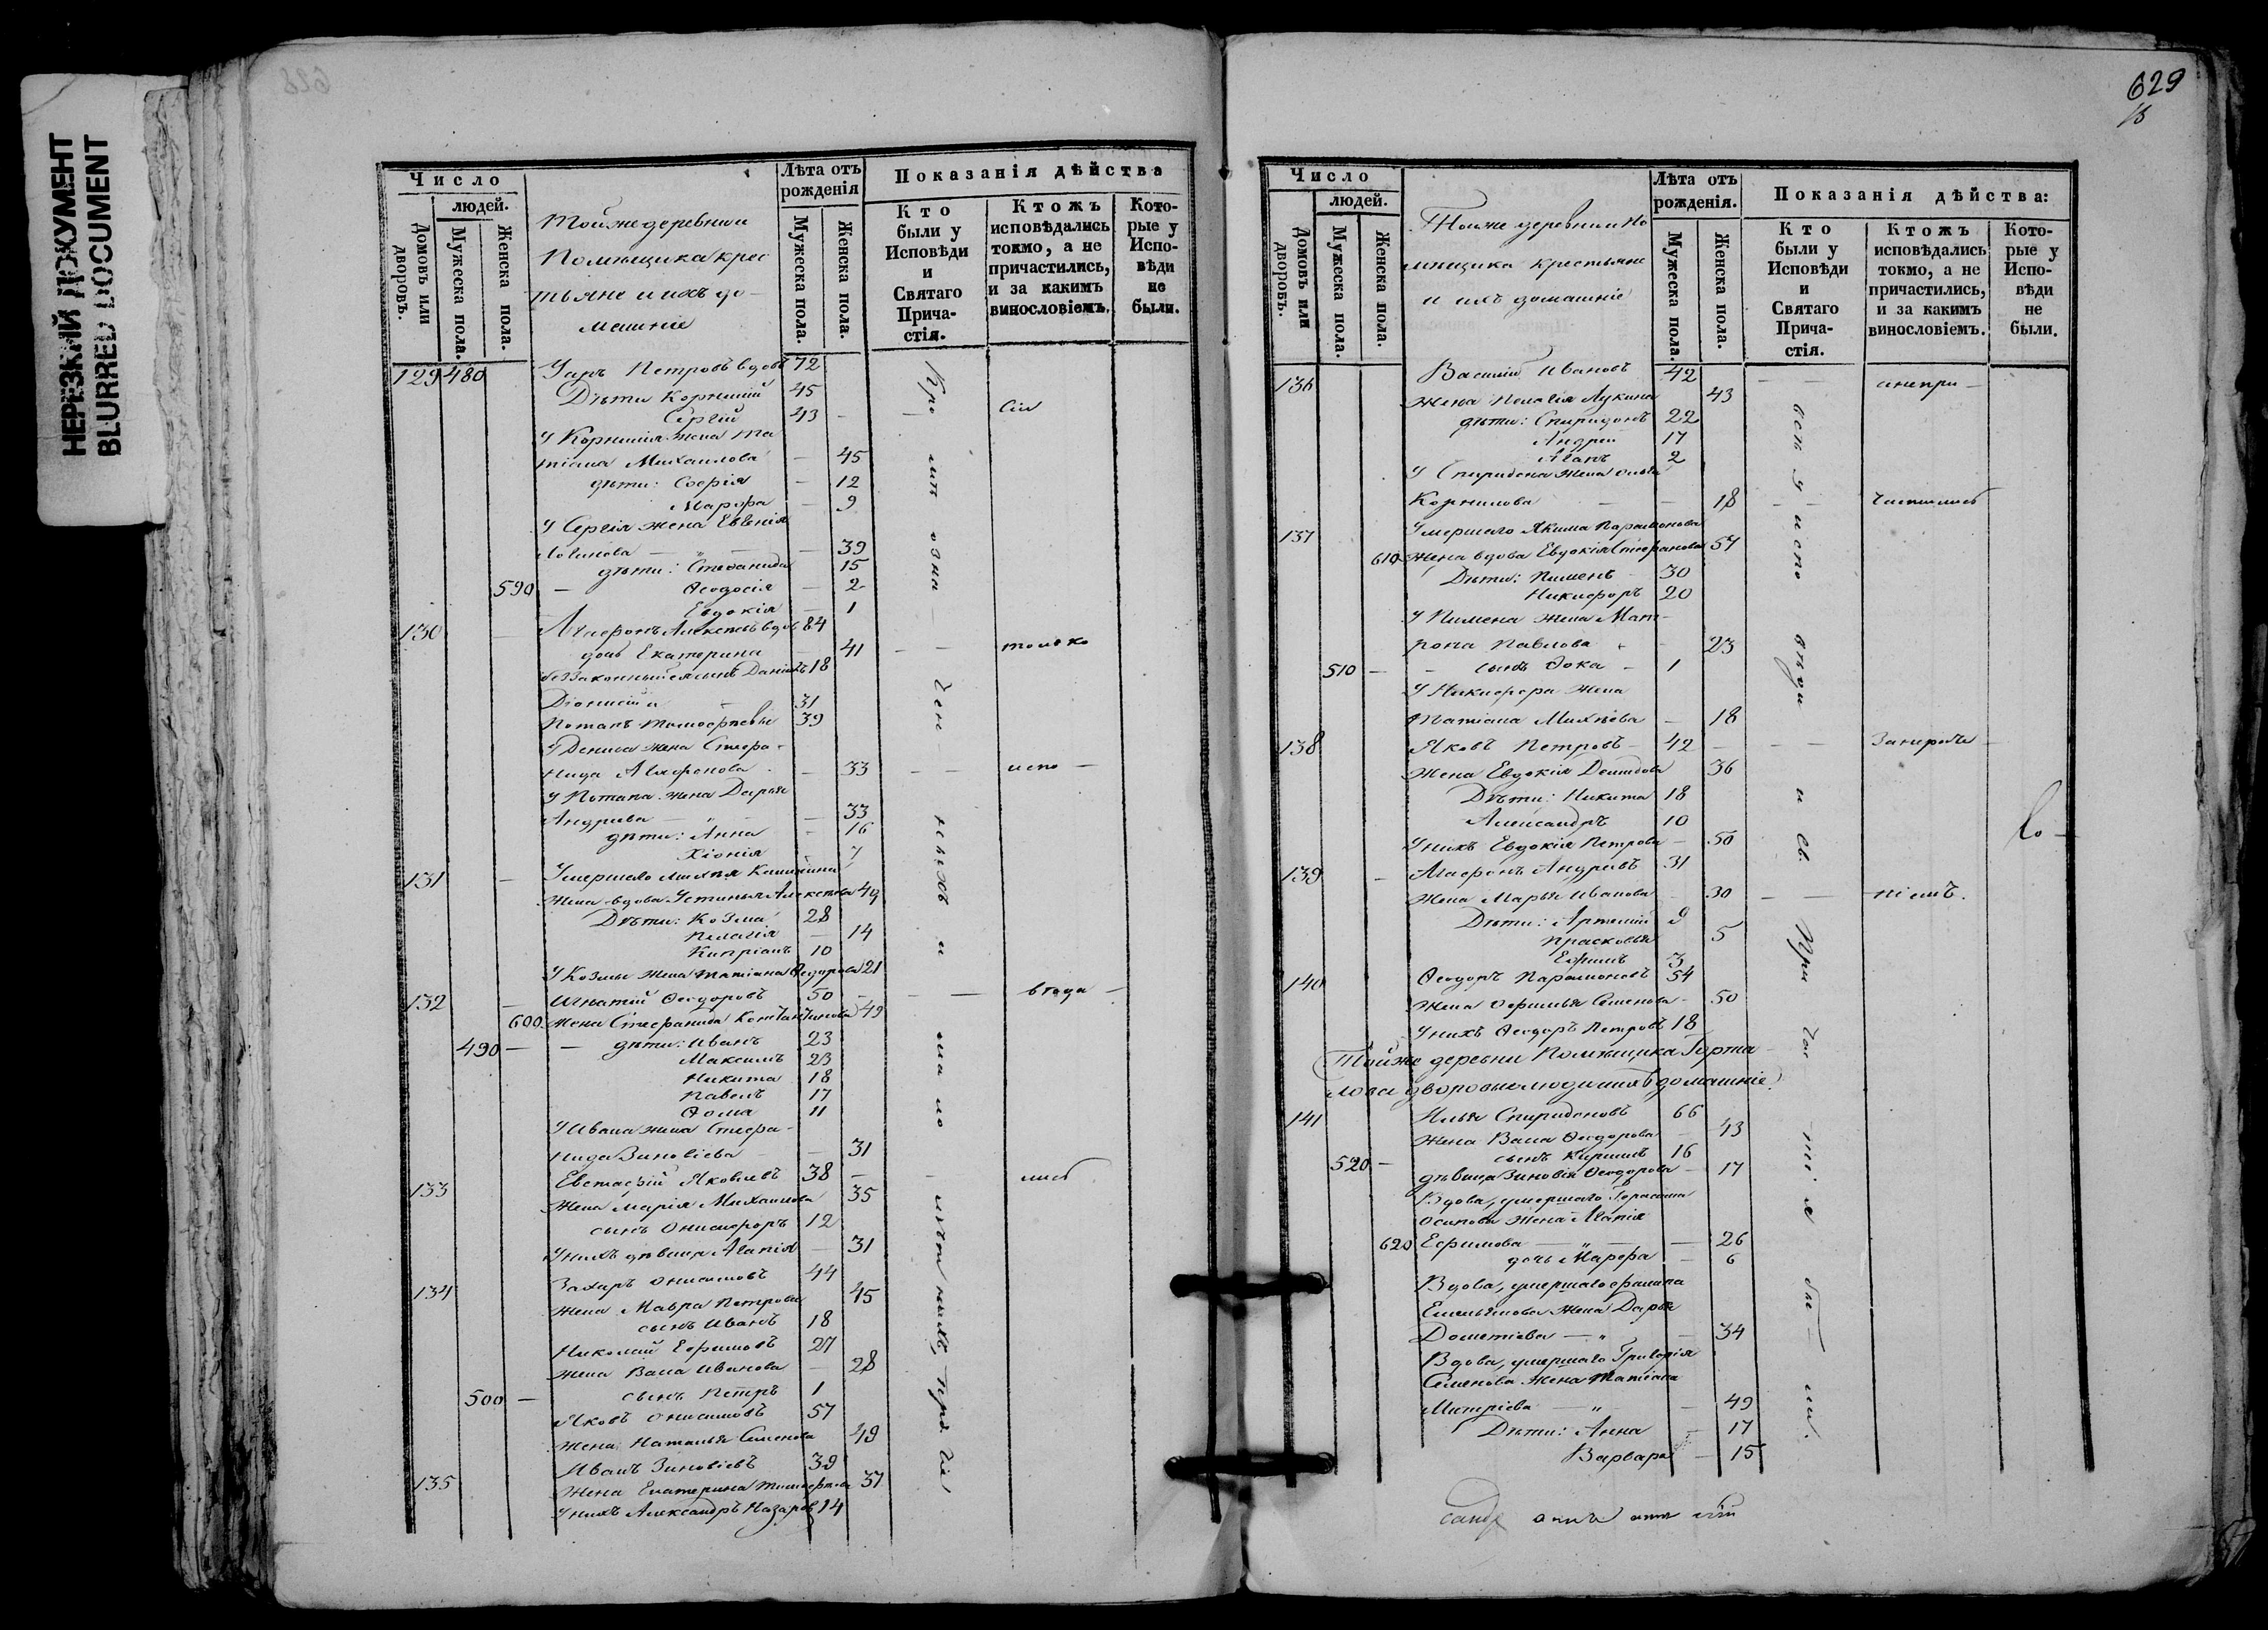 НЕРЕЗКИЙ ДОКУМЕНТ
BLURRED DOCUMENT
Число
людей.
Домовъ или дворовъ.
Мужеска пола.
Женска пола.
Тойже деревни
Помѣщика крес
тьяне и ихъ до-
машніе
Лѣта отъ рожденія
Мужеска пола.
Женска пола.
Показанія дѣйства
Кто были у Исповѣди и Святаго Прича-стія.
Ктожъ исповѣдались токмо, а не причастились, и за какимъ винословіемъ.
Кото-рые у Испо-вѣди не были.
129 480 Уаръ Петровъ вдовъ 72
Дѣти Корнилій 45
Сергій 43 — — сіи
У Корнилія жена Та
тіана Михаилова — 45
дѣти: Софія — 12
Марфа — 9
У Сергія жена Евгенія
Логинова — " — — 39
дѣти: Стефанида 15
590 — Ѳеодосія — 2
Евдокія — 1
130 Агафонъ Алексѣевъ вдов 84
дочь Екатерина 41 — — только
беззаконный ея сынъ Даніилъ 18
Діонисій 31
Потапъ Тимофѣевы 39
У Дениса жена Стефа-
нида Агафонова — 33 — — испо —
У Потапа жена Дарья
Андреева — " — — 33
дѣти: Анна - 16
Хіонія - 7
131 — Умершаго Михея
жена вдова Устинья Алексѣева 49
Дѣти: Козма 28
Пелагія — 14
Кипріанъ 10
У Козмы жена Татіана Ѳеодорова 21
132 — Игнатій Ѳеодоровъ 50 — — вѣда —
600 Жена Стефанида Константинова 49
490 — — дѣти: Иванъ 23
Максимъ 23
Никита 18
Павелъ 17
Ѳома 11
У Ивана жена Стефа-
нида Зиновіева — 31
133 Евстафій Яковлевъ 38 — — лись
Жена Марія Михаилова 35
сынъ Онисифоръ 12
У нихъ дѣвица Агапія — 31
134 Захаръ Онисимовъ 44
Жена Мавра Петрова 45
сынъ Иванъ 18
Николай Ефимовъ 27
Жена Васа Иванова — 28
500 — сынъ Петръ 1
Яковъ Онисимовъ 57
Жена Наталья Семенова 49
135 Иванъ Зиновіевъ 39
Жена Екатерина Тимофѣева 37
У нихъ Александръ Назаровъ 14
629
Число
людей.
Домовъ или дворовъ.
Мужеска пола.
Женска пола.
Тойже деревни По
мѣщика крестьяне
и ихъ домашніе
Лѣта отъ рожденія.
Мужеска пола.
Женска пола.
Показанія дѣйства:
Кто были у Исповѣди и Святаго Прича-стія.
Ктожъ исповѣдались токмо, а не причастились, и за какимъ винословіемъ.
Кото-рые у Испо-вѣди не были.
136 Василій Ивановъ 42 — — а не при —
Жена Пелагія Лукина 43
дѣти: Спиридонъ 22
Андрей 17
Агапъ 2
У Спиридона жена Ольга
Корнилова — — 18 — — частились
137 Умершаго Якима Парамонова
610 Жена вдова Евдокія Стефанова 57
Дѣти: Пименъ 30
Никифоръ 20
У Пимена жена Мат-
рона Павлова - 23
510 — — сынъ Фока - 1
У Никифора жена
Татіана Михѣева — 18
138 Яковъ Петровъ — 42 — — —
Жена Евдокія Демидова 36
Дѣти: Никита 18
Александръ 10
У нихъ Евдокія Петрова — 50
139 — Агафонъ Андреевъ 31
Жена Марья Иванова — 30 — — ніемъ.
Дѣти: Артемій 9
Прасковья 5
Ефимъ 3
140 Ѳеодоръ Парамоновъ 54
Жена Офимья Семенова — 50
У нихъ Ѳеодоръ Петровъ 18
Тойже деревни Помѣщика
дворовые люди и ихъ домашніе.
141 Илья Спиридоновъ 66
Жена Васа Ѳеодорова 43
сынъ Кирилъ 16
520 — дѣвица Зиновія Ѳеодорова — 17
Вдова, умершаго Герасима
Осипова жена Агапія
620 Ефимова — " — — 26
дочь Марфа — 6
Вдова, умершаго Филипа
Емельянова жена Дарья
Дометіева — " — 34
Вдова, умершаго Григорія
Семенова жена Татіана
Митріева — " — 49
Дѣти: Анна — 17
Варвара — 15